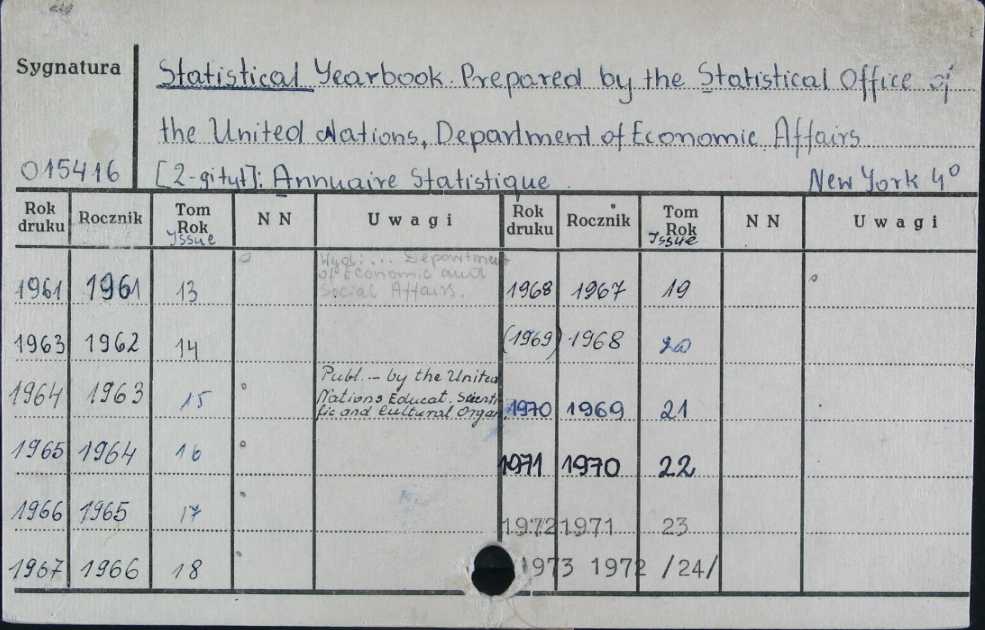 Sygnatura
Statistical Yearbook. Prepared by the Statistical Office of
the United Nations, Department of Economic Affairs
015416 [2-gi tyt]: Annuaire Statistique. New York 4°
Rok druku Rocznik Tom Rok Issue NN Uwagi Rok druku Rocznik Tom Rok Issue NN Uwagi
Wyd: ... Department
of Economic and
Social Affairs.
1961 1961 13 1968 1967 19
1963 1962 14 (1969) 1968 20
Publ. - by the United
Nations Educat. Scienti-
fic and Cultural Organ.
1964 1963 15 1970 1969 21
1965 1964 16 1971 1970 22
1966 1965 17 1972 1971 23
1967 1966 18 1973 1972 /24/